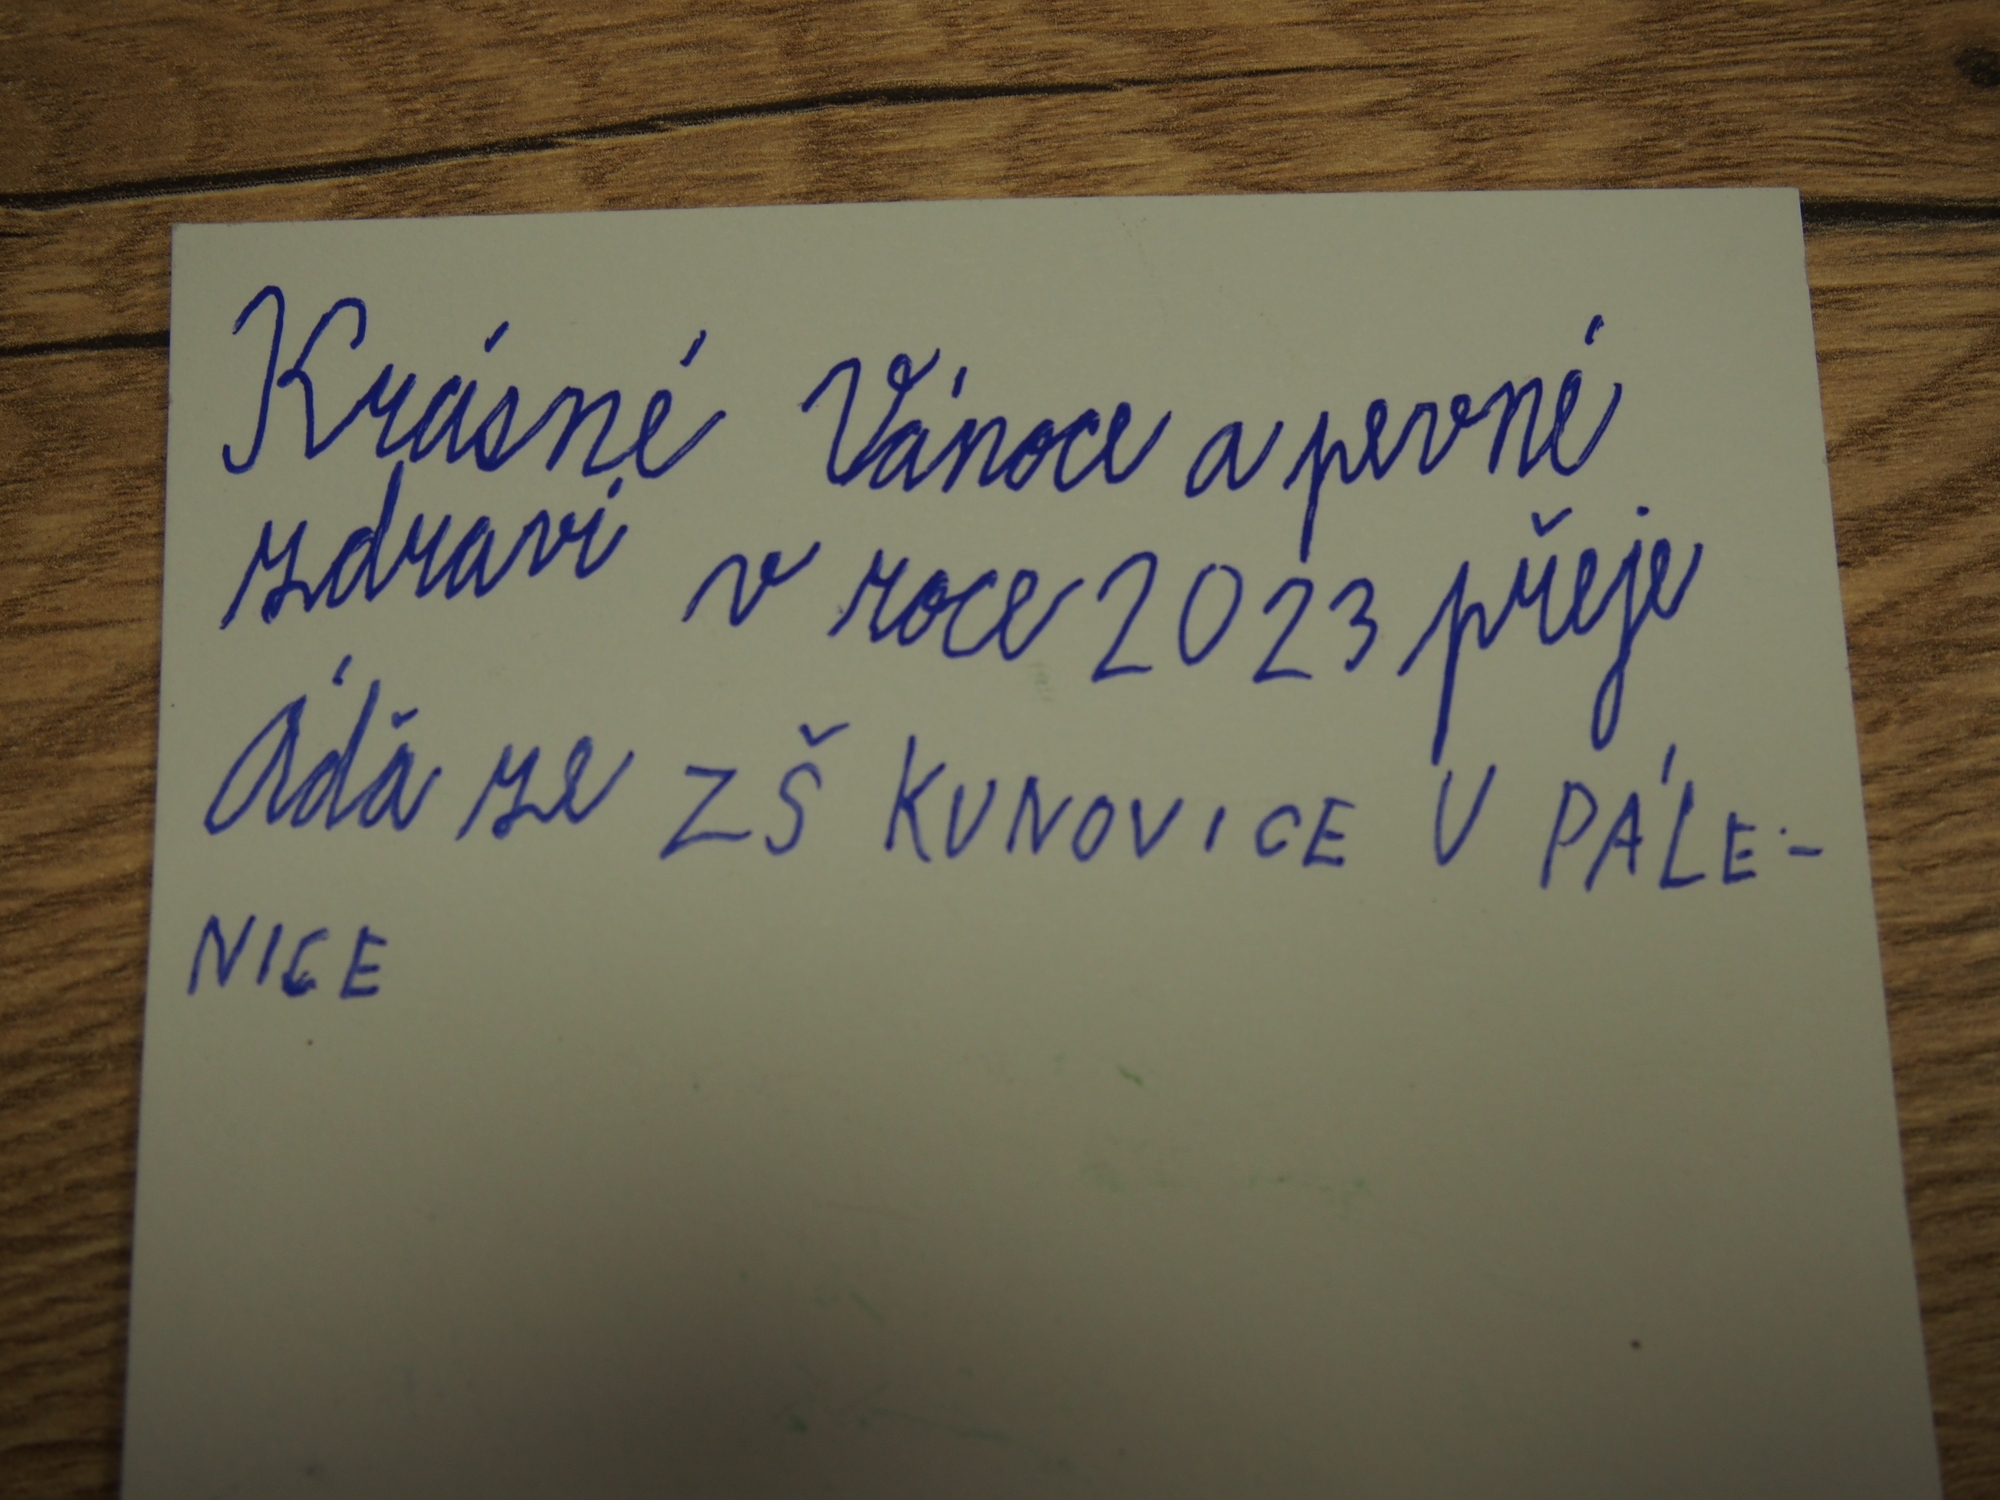 Krásné Vánoce a pevné
zdraví v roce 2023 přeje
Áďa ze ZŠ KUNOVICE U PÁLE-
NICE